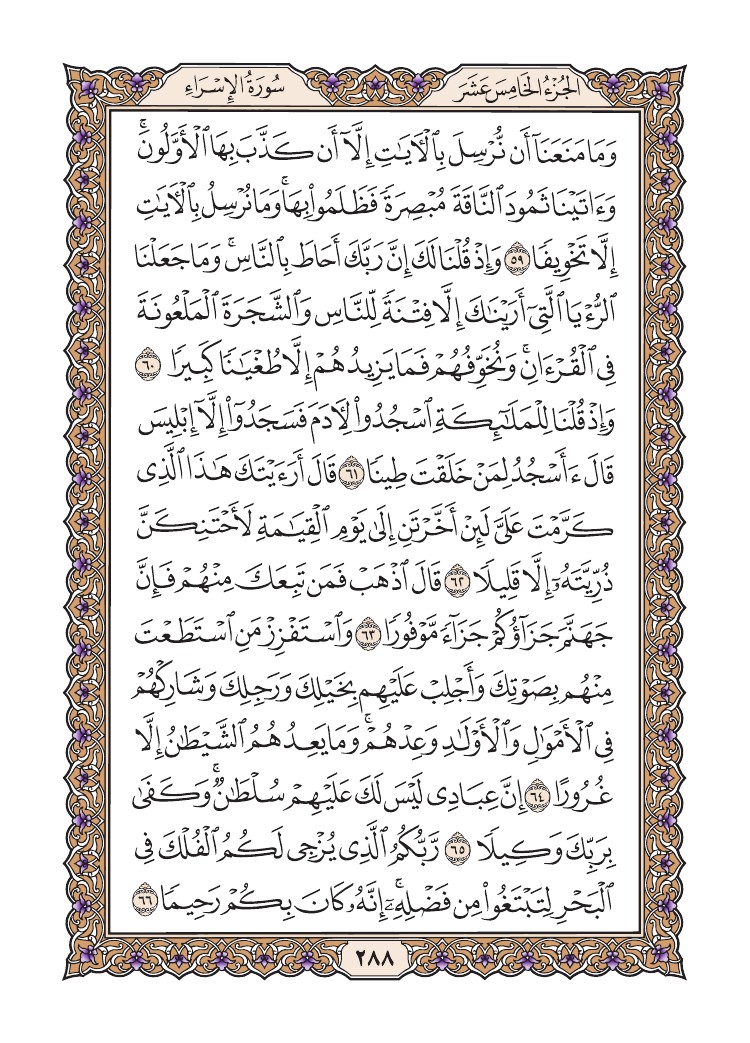 الجُزْءُ الخَامِسَ عَشَرَ
سُورَةُ الإِسْرَاءِ
وَمَا مَنَعَنَآ أَن نُّرْسِلَ بِٱلْأَيَٰتِ إِلَّآ أَن كَذَّبَ بِهَا ٱلْأَوَّلُونَۚ
وَءَاتَيْنَا ثَمُودَ ٱلنَّاقَةَ مُبْصِرَةً فَظَلَمُوا۟ بِهَاۚ وَمَا نُرْسِلُ بِٱلْأَيَٰتِ
إِلَّا تَخْوِيفًا ٥٩ وَإِذْ قُلْنَا لَكَ إِنَّ رَبَّكَ أَحَاطَ بِٱلنَّاسِۚ وَمَا جَعَلْنَا
ٱلرُّءْيَا ٱلَّتِىٓ أَرَيْنَٰكَ إِلَّا فِتْنَةً لِّلنَّاسِ وَٱلشَّجَرَةَ ٱلْمَلْعُونَةَ
فِى ٱلْقُرْءَانِۚ وَنُخَوِّفُهُمْ فَمَا يَزِيدُهُمْ إِلَّا طُغْيَٰنًا كَبِيرًا ٦٠
وَإِذْ قُلْنَا لِلْمَلَٰٓئِكَةِ ٱسْجُدُوا۟ لِأَدَمَ فَسَجَدُوٓا۟ إِلَّآ إِبْلِيسَ
قَالَ ءَأَسْجُدُ لِمَنْ خَلَقْتَ طِينًا ٦١ قَالَ أَرَءَيْتَكَ هَٰذَا ٱلَّذِى
كَرَّمْتَ عَلَىَّ لَئِنْ أَخَّرْتَنِ إِلَىٰ يَوْمِ ٱلْقِيَٰمَةِ لَأَحْتَنِكَنَّ
ذُرِّيَّتَهُۥٓ إِلَّا قَلِيلًا ٦٢ قَالَ ٱذْهَبْ فَمَن تَبِعَكَ مِنْهُمْ فَإِنَّ
جَهَنَّمَ جَزَآؤُكُمْ جَزَآءً مَّوْفُورًا ٦٣ وَٱسْتَفْزِزْ مَنِ ٱسْتَطَعْتَ
مِنْهُم بِصَوْتِكَ وَأَجْلِبْ عَلَيْهِم بِخَيْلِكَ وَرَجِلِكَ وَشَارِكْهُمْ
فِى ٱلْأَمْوَٰلِ وَٱلْأَوْلَٰدِ وَعِدْهُمْۚ وَمَا يَعِدُهُمُ ٱلشَّيْطَٰنُ إِلَّا
غُرُورًا ٦٤ إِنَّ عِبَادِى لَيْسَ لَكَ عَلَيْهِمْ سُلْطَٰنٌۚ وَكَفَىٰ
بِرَبِّكَ وَكِيلًا ٦٥ رَّبُّكُمُ ٱلَّذِى يُزْجِى لَكُمُ ٱلْفُلْكَ فِى
ٱلْبَحْرِ لِتَبْتَغُوا۟ مِن فَضْلِهِۦٓۚ إِنَّهُۥ كَانَ بِكُمْ رَحِيمًا ٦٦
٢٨٨